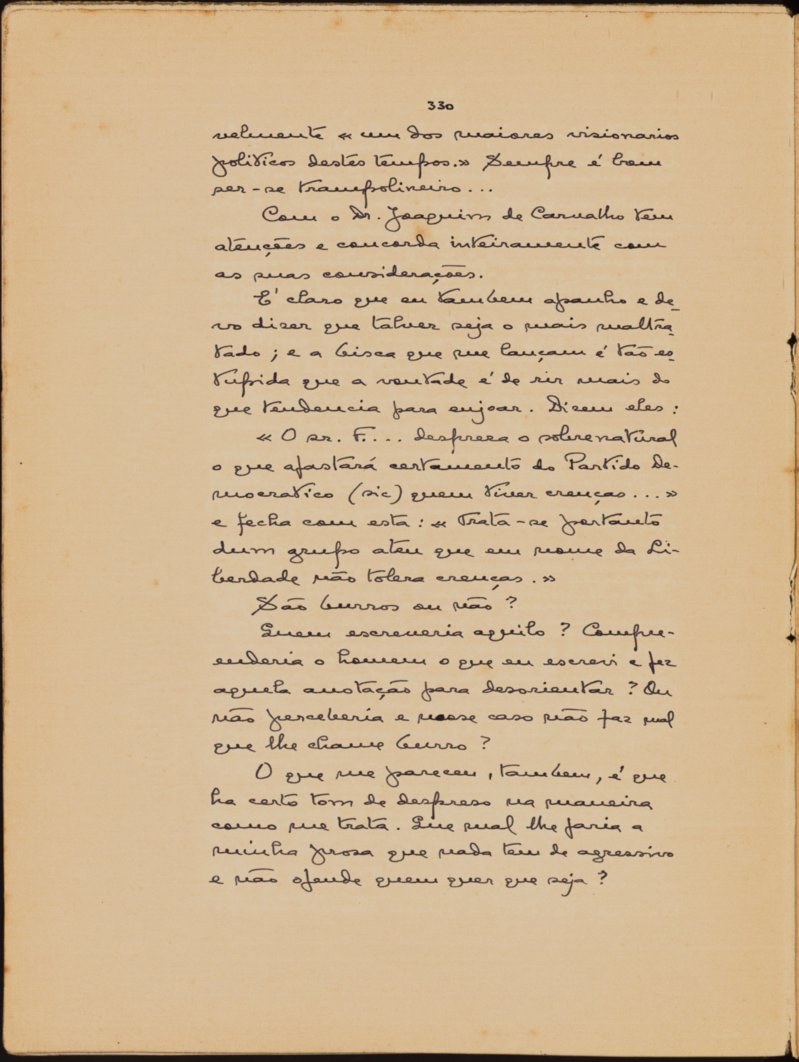 330
velmente « um dos maiores visionarios
politicos destes tempos.» Sempre é bom
ser-se trampolineiro...
Com o Dr. Joaquim de Carvalho tem
atenções e concorda inteiramente com
as suas considerações.
É claro que eu tambem apanho e de-
vo dizer que talvez seja o mais maltra-
tado; e a bisca que me lançam é tão es-
tupida que a vontade é de rir mais do
que tendencia para enjoar. Dizem eles:
« O sr. F.... despreza o sobrenatural
o que afastará certamente do Partido De-
mocratico (sic) quem tiver crenças...»
e fecha com esta: « Trata-se portanto
dum grupo ateu que em nome da Li-
berdade não tolera crenças.»
São burros ou não?
Quem escreveria aquilo? Compre-
enderia o homem o que eu escrevi e fez
aquela anotação para desorientar? Ou
não perceberia e nesse caso não faz mal
que lhe chame burro?
O que me pareceu, tambem, é que
ha certo tom de despreso na maneira
como me trata. Que mal lhe faria a
minha prosa que nada tem de agressivo
e não ofende quem quer que seja?